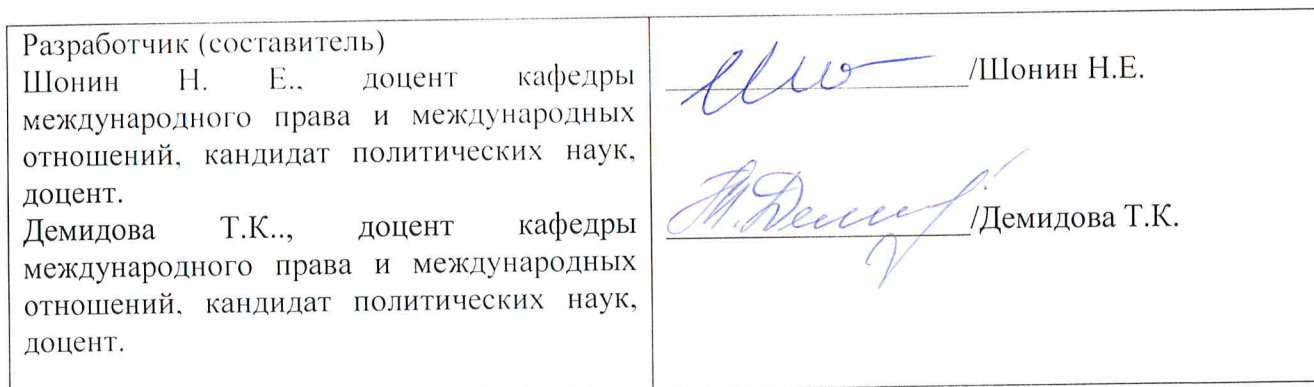 Разработчик (составитель)
Шонин Н. Е., доцент кафедры
международного права и международных
отношений, кандидат политических наук,
доцент.
Демидова Т.К.., доцент кафедры
международного права и международных
отношений, кандидат политических наук,
доцент.
/Шонин Н.Е.
/Демидова Т.К.